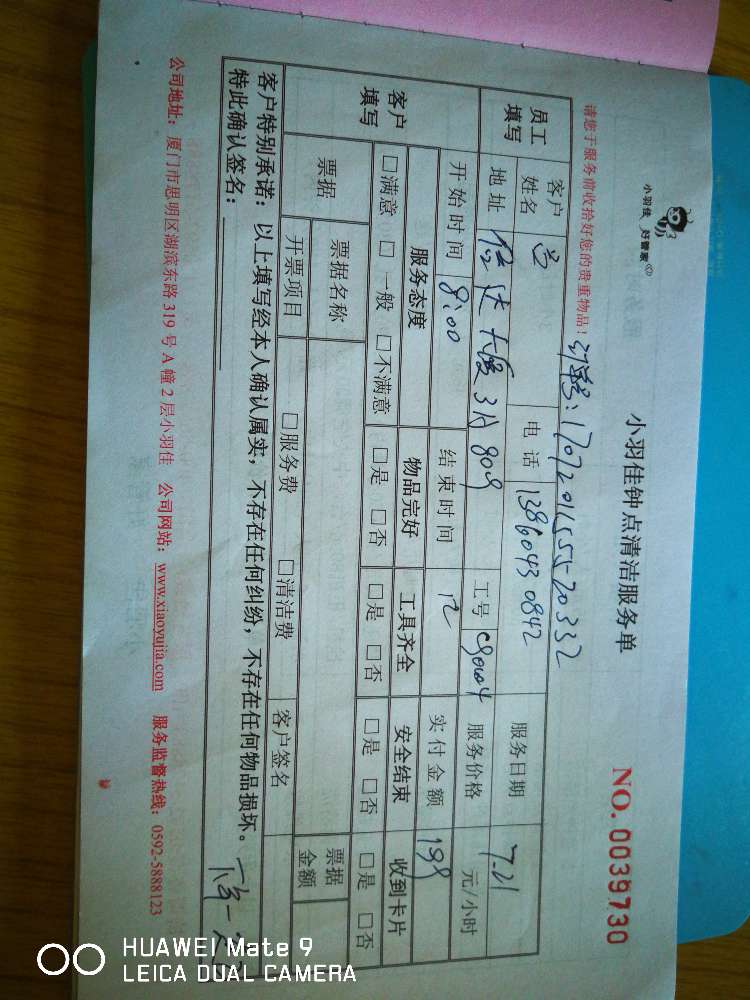 小羽佳 好管家
小羽佳钟点清洁服务单
NO.0039730
请您于服务前收拾好您的贵重物品!
170720165520332
员工填写 客户姓名 电话 13860430842 服务日期 7-21
地址 大厦 3A 809 工号 服务价格 元/小时
开始时间 8:00 结束时间 12 实付金额 198
客户填写 服务态度 物品完好 工具齐全 安全结束 收到卡片
□满意 □一般 □不满意 □是 □否 □是 □否 □是 □否 □是 □否
票据 票据名称 票据金额
开票项目 □服务费 □清洁费 客户签名
客户特别承诺:以上填写经本人确认属实,不存在任何纠纷,不存在任何物品损坏。
特此确认签名:
公司地址:厦门市思明区湖滨东路 319 号 A 幢 2 层小羽佳 公司网站:www.xiaoyujia.com 服务监督热线:0592-5888123
HUAWEI Mate 9
LEICA DUAL CAMERA